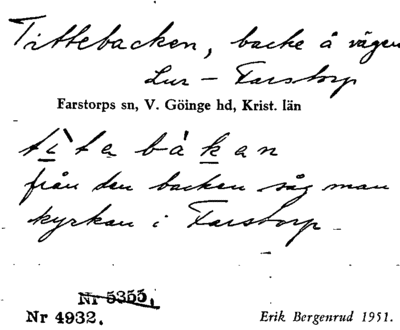 Tittebacken, backe å vägen
Lur - Farstorp
Farstorps sn, V. Göinge hd, Krist. län
tìta bàkan
från den backen såg man
kyrkan i Farstorp
Nr 5355.
Nr 4932.
Erik Bergenrud 1951.